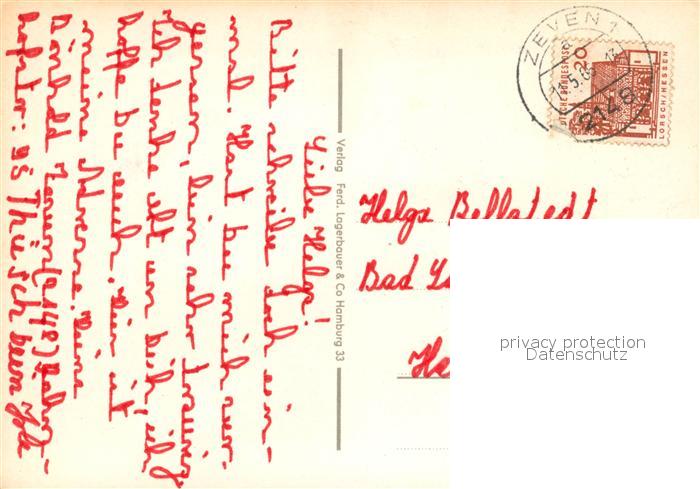 Liebe Helga!
Bitte schreibe doch ein-
mal. Hast du mich ver-
gessen, bin sehr traurig.
Ich denke oft an dich, ich
hoffe du auch. Hier ist
meine Adresse. Heim
Zeven (2148) Bahn-
hofstr. 98 Tschüß dein
Verlag Ferd. Lagerbauer & Co Hamburg 33
ZEVEN 1
2148
DEUTSCHE BUNDESPOST
20
LORSCH/HESSEN
Helga Bellstedt
Bad
He
privacy protection
Datenschutz